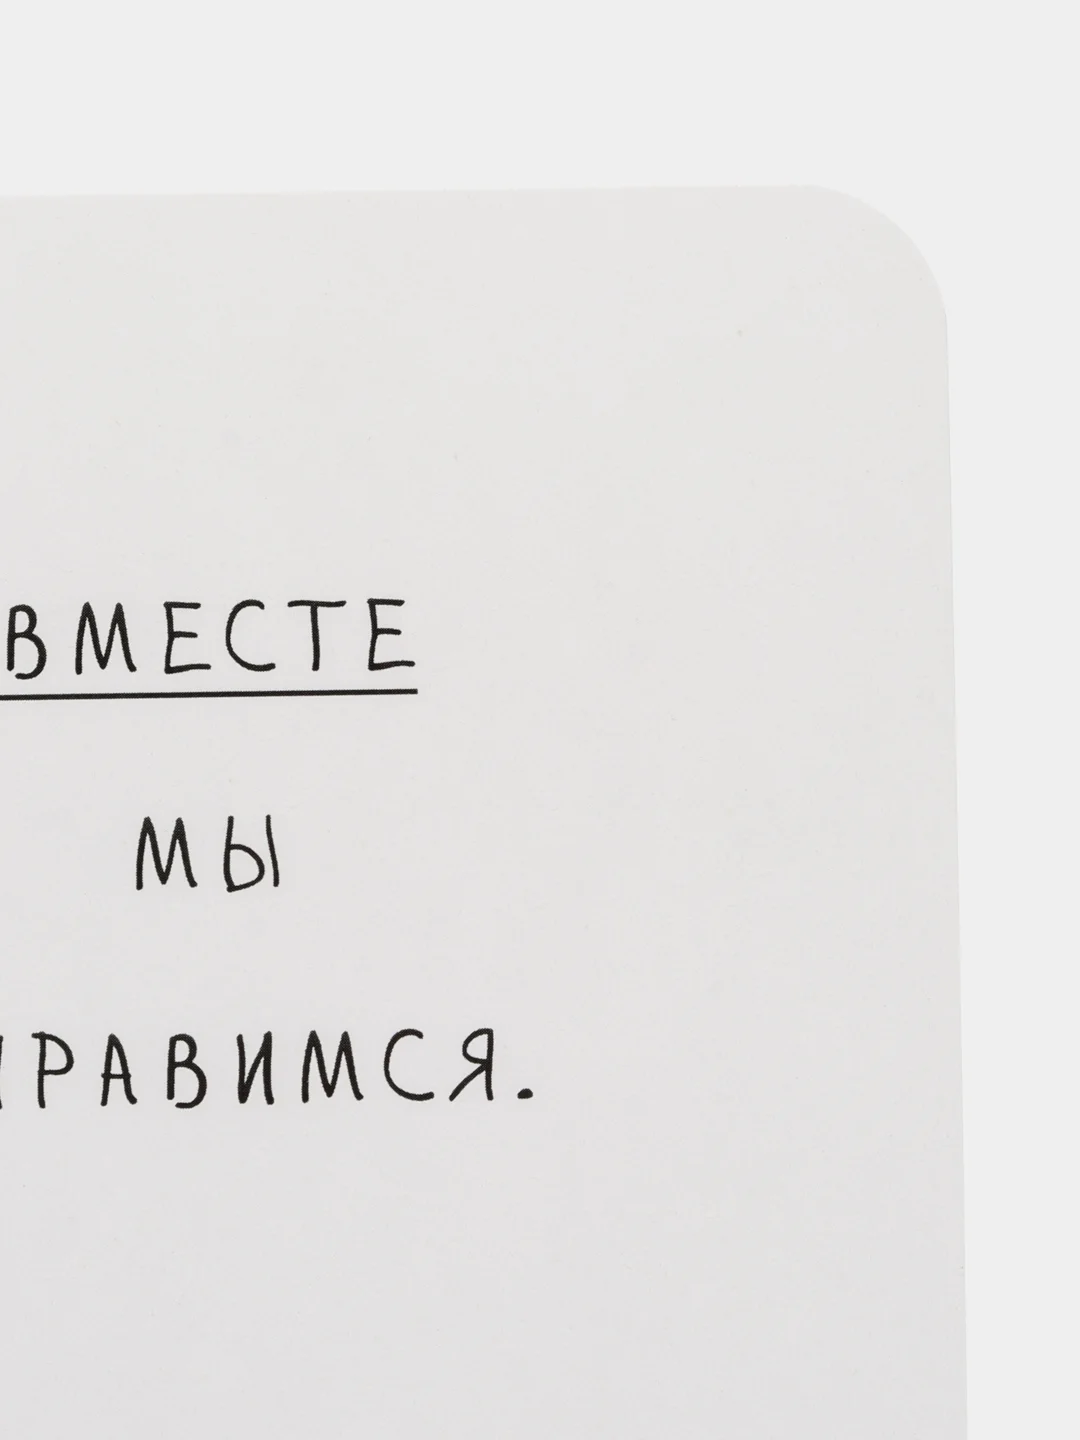 ВМЕСТЕ
МЫ
ПРАВИМСЯ.